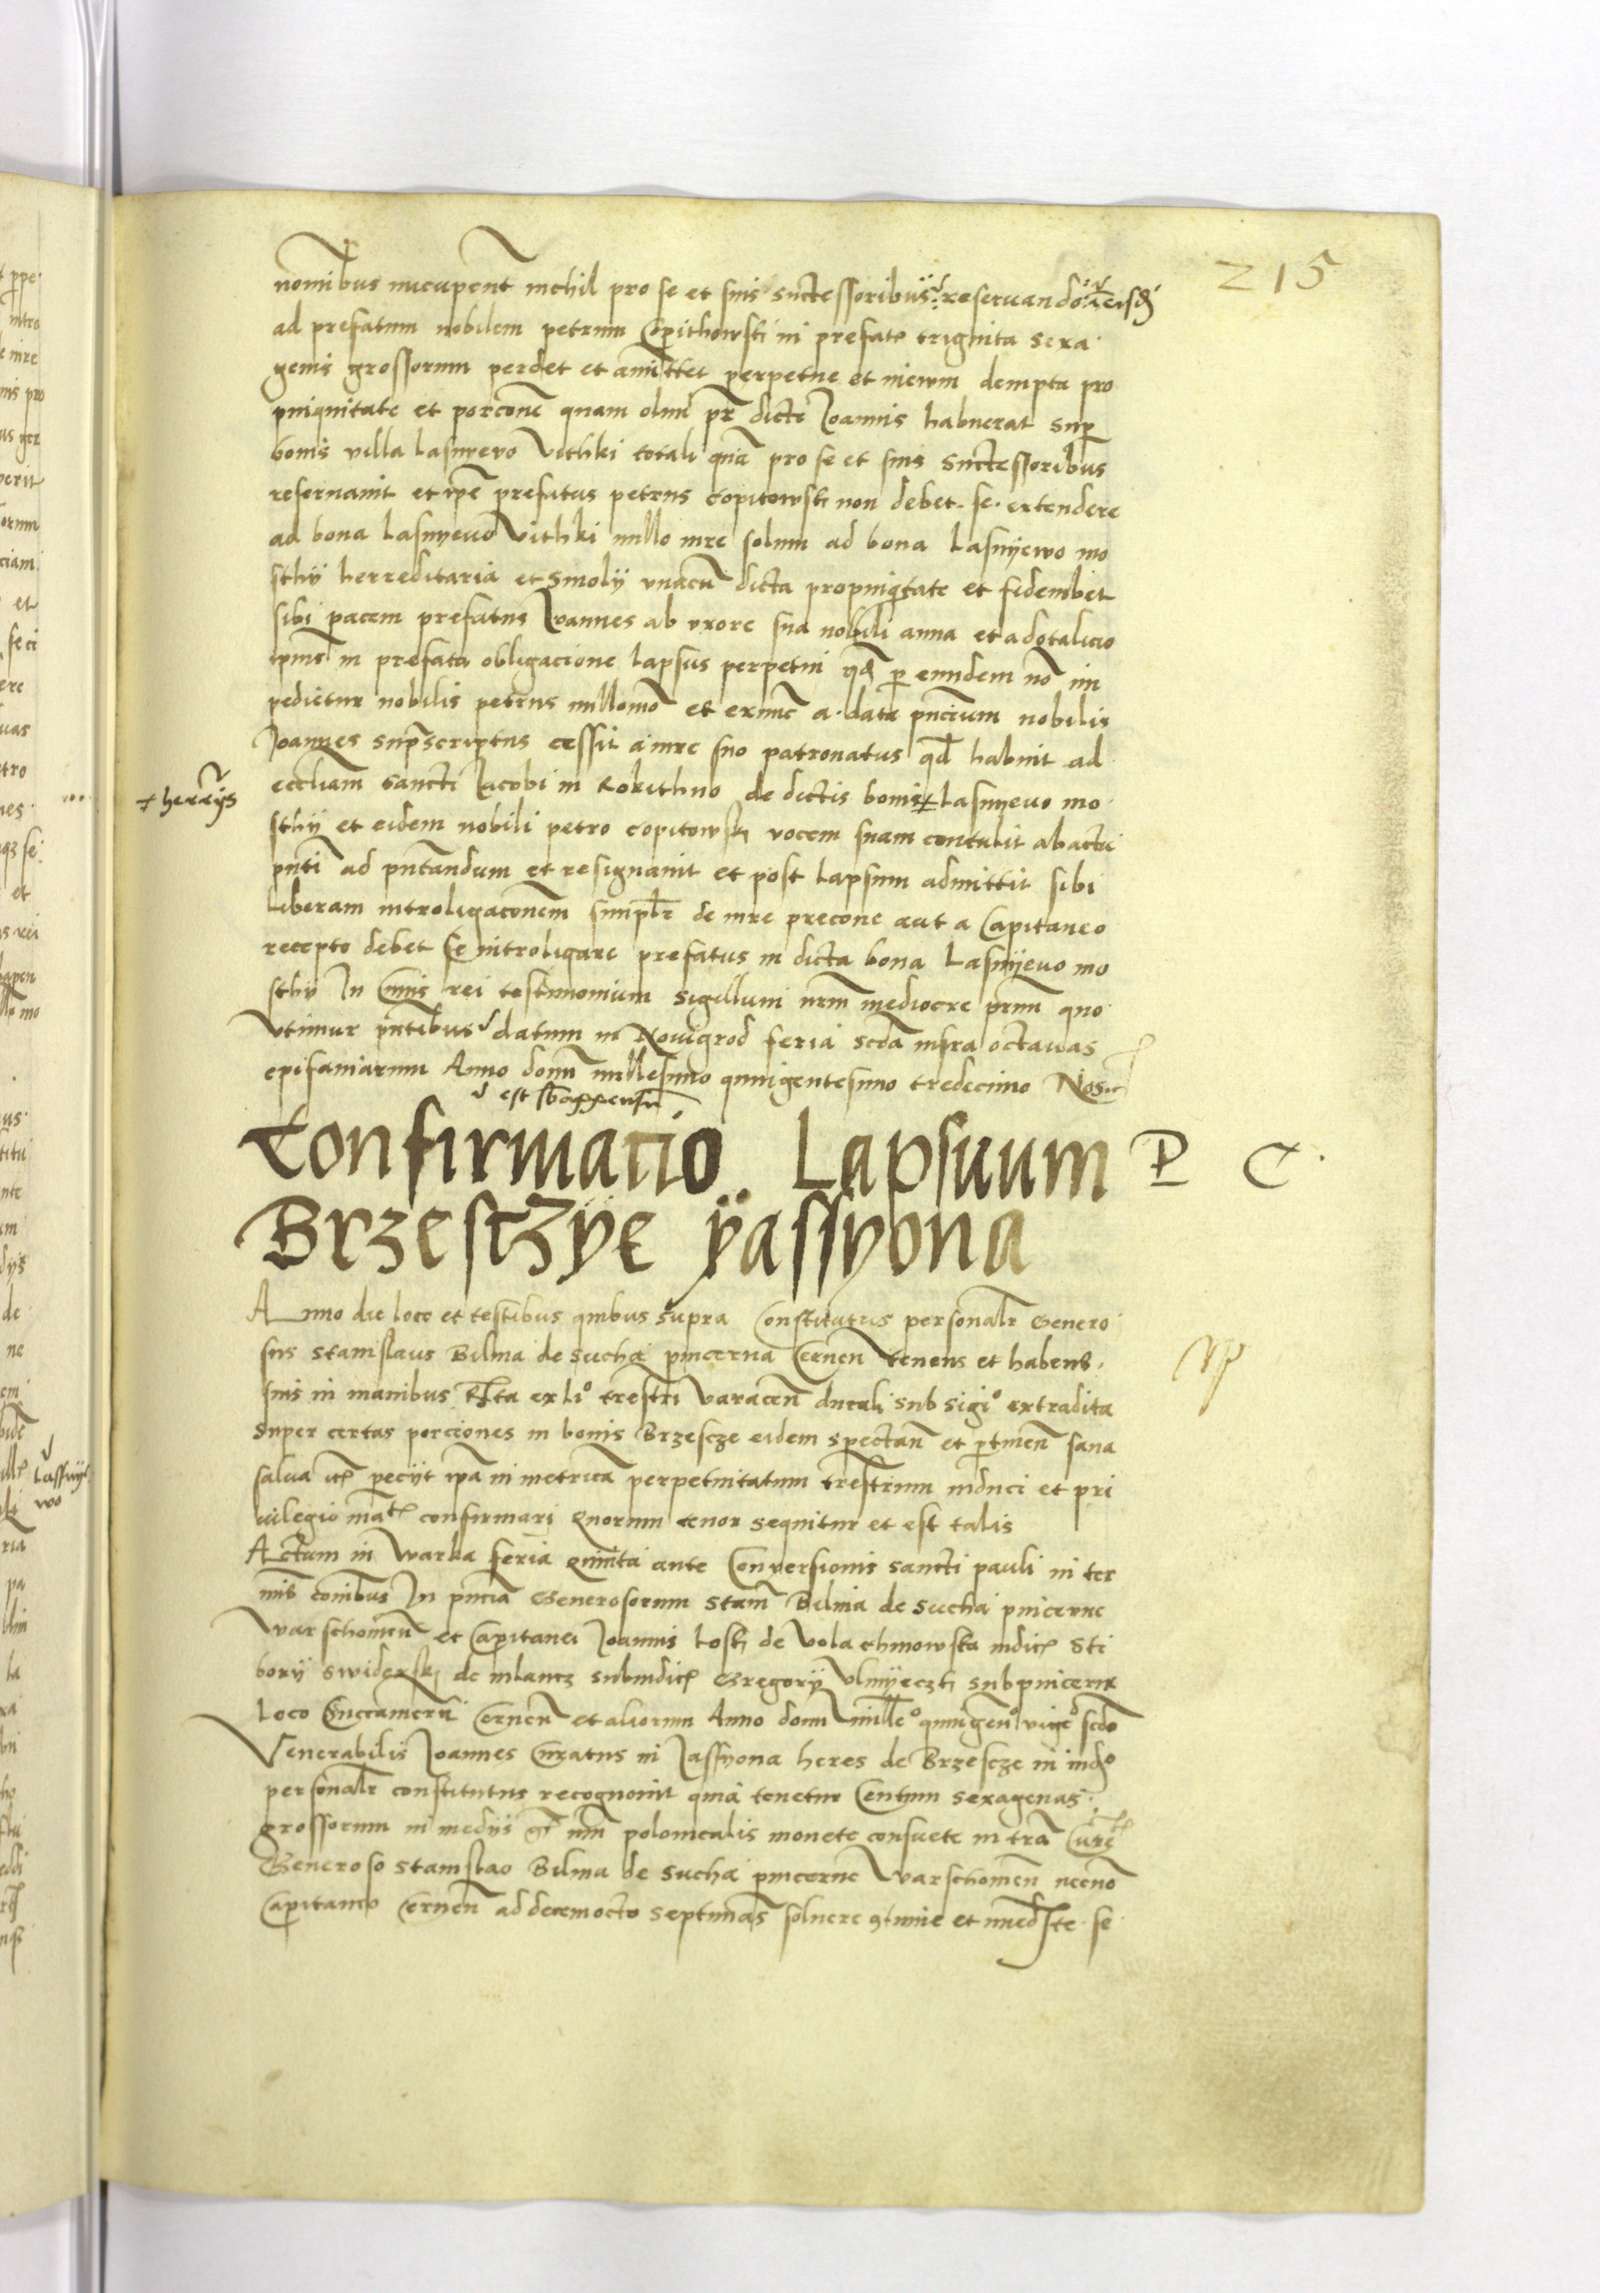 215
nomibus nucupent nichil pro se et suis successoribus reservando in eisdem
ad prefatum nobilem petrum Copithowski in prefatis triginta sexa
genis grossorum perdet et amittet perpetue et in ewm dempta pro
pniquitate et porcone quam olim pr dicti Joannis habuerat super
bonis villa Lasnyevo Vithki totali qua pro se et suis successoribus
reservavit et ipse prefatus petrus Copitowski non debet se extendere
ad bona Lasnyevo Vithki nullo iure solum ad bona Lasnyewo mo
sthy herreditaria et Smoly vnacu dicta propinqitate et fideiubet
sibi pacem prefatus Joannes ab vxore sua nobili anna et a dotalicio
ipius in prefata obligacione lapsus perpetui qd per eundem no im
pedietur nobilis petrus nullomo et exnuc a data pncium nobilis
Joannes suprascriptus cessit a iure suo patronatus qd habuit ad
+ herrijs
eccliam sancti Jacobi in Rokithno de dictis bonis + Lasnyevo mo
sthy et eidem nobili petro Copitowski vocem suam contulit ab actu
pnti ad pntandum et resignavit et post lapsum admittit sibi
liberam introligaconem simplr de iure precone aut a Capitaneo
recepto debet se introligare prefatus in dicta bona Lasnyevo mo
sthy In Cuius rei testimonium sigillum nrm mediocre prnm quo
Vtimur pntibus datum in Novigrod feria scda infra octavas
epifaniarum Anno domi millesimo quingentesimo tredecimo Nos
est sbappensu
Confirmacio Lapsuum
P C
Brzesczye Yassyona
Anno die loco et testibus quibus supra Constitutus personalr Genero
sus Stanislaus Bilina de Sucha pincerna Cernen tenens et habens
suis in manibus Rta ex lio trestri Varacen ducali sub sigio extradita
super certas porciones in bonis Brzescze eidem spectan et ptinen sana
salva petiit ipa in metrica perpetuitatum trestrium induci et pri
vilegio confirmari Quorum tenor sequitur et est talis
Actum in Warka feria Quinta ante Conversionis sancti pauli in ter
mis conibus In pncia Generosorum Stani Bilina de Sucha pincerne
Warschowien et Capitanei Joannis Loski de Vola chinowska iudicis Sti
bory Swiderski de mlancz subiudicis Gregory Vlmyeczki subpincerne
Loco Succamerii Cernen et aliorum Anno domi milleo quingeno vigeo scdo
Venerabilis Joannes Curatus in Jassyona heres de Brzescze in iudo
personalr constitutus recognovit quia tenetur Centum sexagenas
grossorum in medys gr num polonicalis monete consuete in tra Curre
Generoso Stanislao Bilina de Sucha pincerne Warschowien necno
Capitaneo Cernen ad decemocto septimanas solvere et immediate se